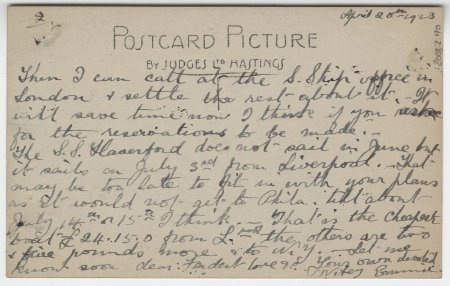 2
April 20th 1923
POSTCARD PICTURE
BY JUDGES LTD HASTINGS
Then I can call at the S. Ship office in
London & settle the rest about it. It
will save time now I think if you
for the reservations to be made. -
The S.S. Haverford does not sail in June but
it sails on July 3rd from Liverpool. - That
may be too late to fit in with your plans
as it would not get to Phila. till about
July 14th or 15th I think. - That is the cheapest
boat £24.15.0 from L'pool the others are two
& five pounds more & to N.Y. - Let me
know soon dear. Fondest love Your own devoted